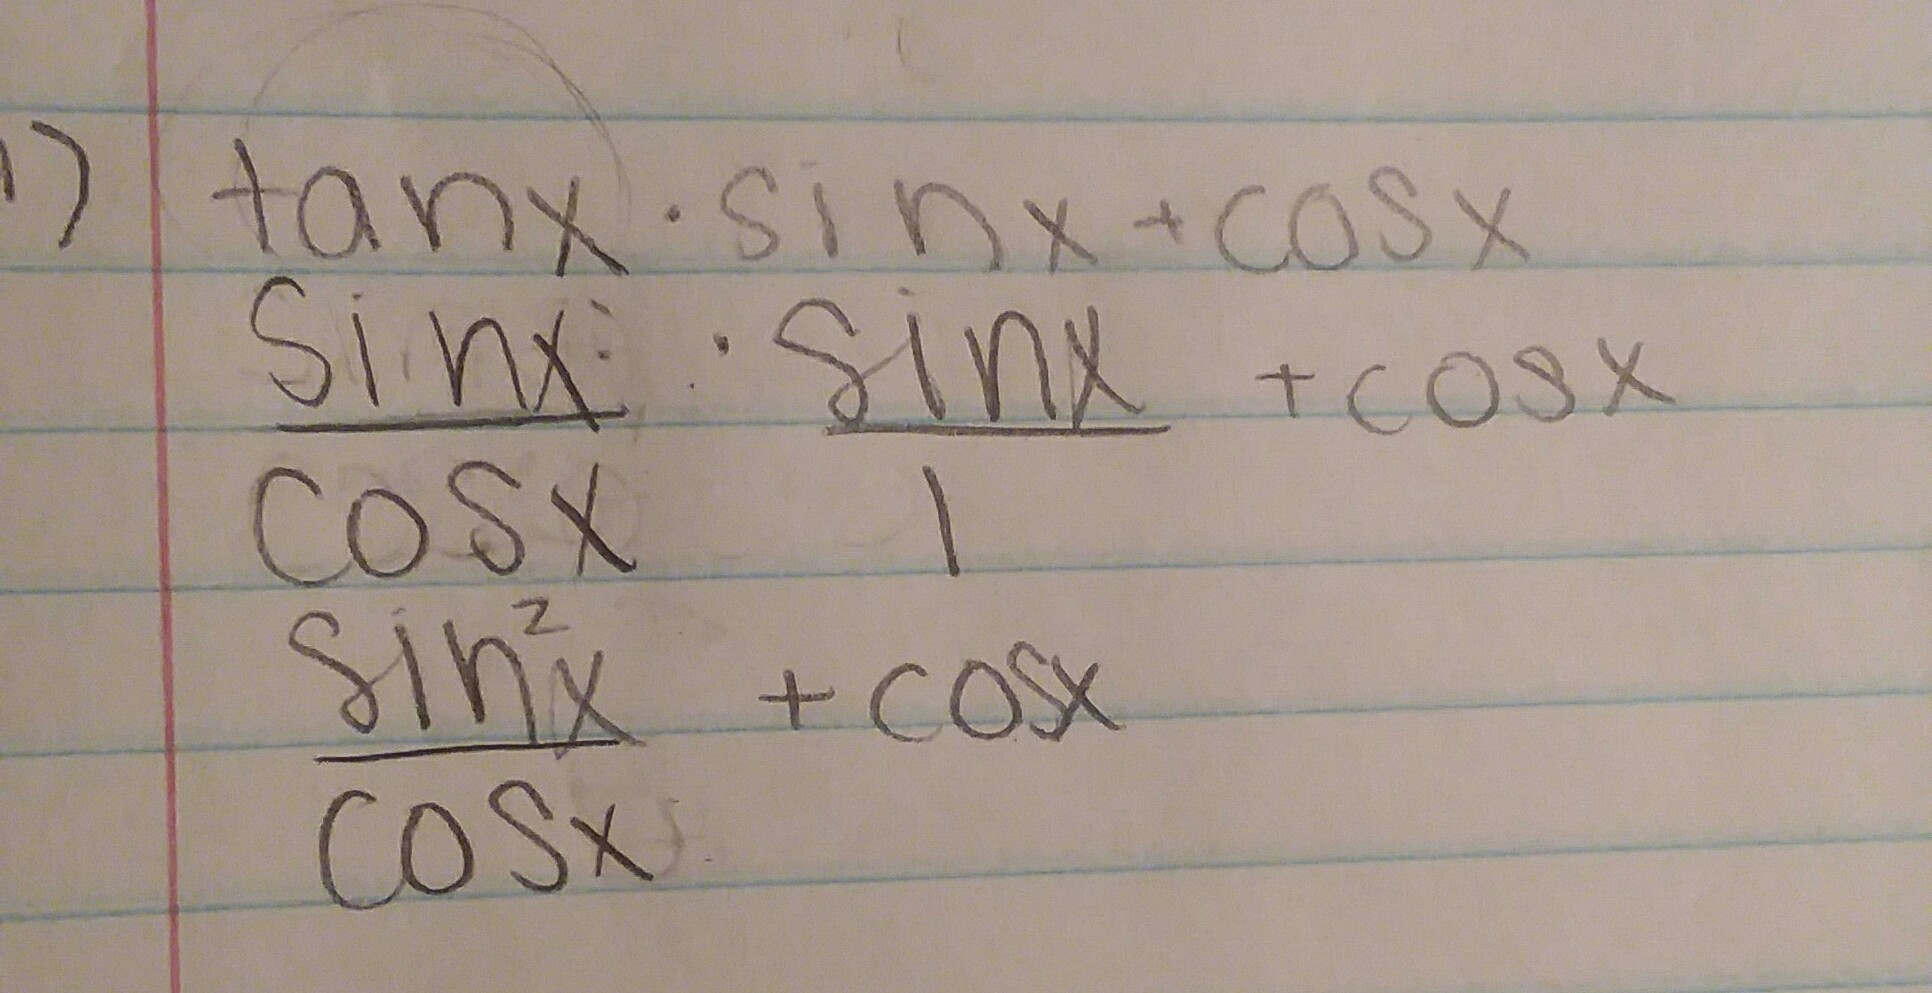 1) tanx · sinx + cosx
sinx · sinx + cosx
cosx 1
sin²x + cosx
cosx